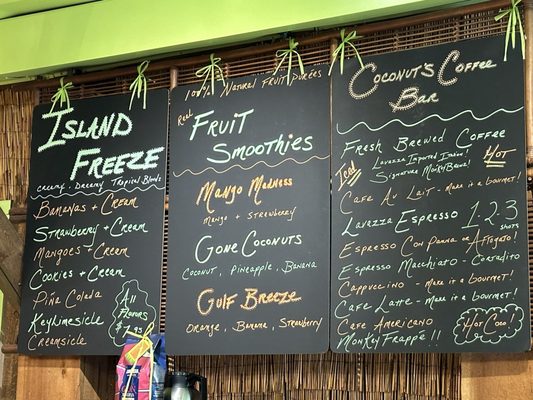 Island
Freeze
creamy, Dreamy Tropical Blends
Bananas + Cream
Strawberry + Cream
Mangoes + Cream
Cookies + Cream
Piña Colada
Key lime sicle
Creamsicle
All
Flavors
$7.95
100% Natural Fruit Purées
Real
Fruit
Smoothies
Mango Madness
Mango + Strawberry
Gone Coconuts
Coconut, Pineapple, Banana
Gulf Breeze
Orange, Banana, Strawberry
Coconut's Coffee
Bar
Fresh Brewed Coffee
Iced
Lavazza Imported Italian!
Signature Monkey Beans
Hot
Cafe Au Lait - make it a gourmet!
Lavazza Espresso 1·2·3
shots
Espresso Con Panna or Affogato!
Espresso Macchiato - Cortadito
Cappuccino - make it a gourmet!
Cafe Latte - make it a gourmet!
Cafe Americano
Monkey Frappé!!
Hot Coco!